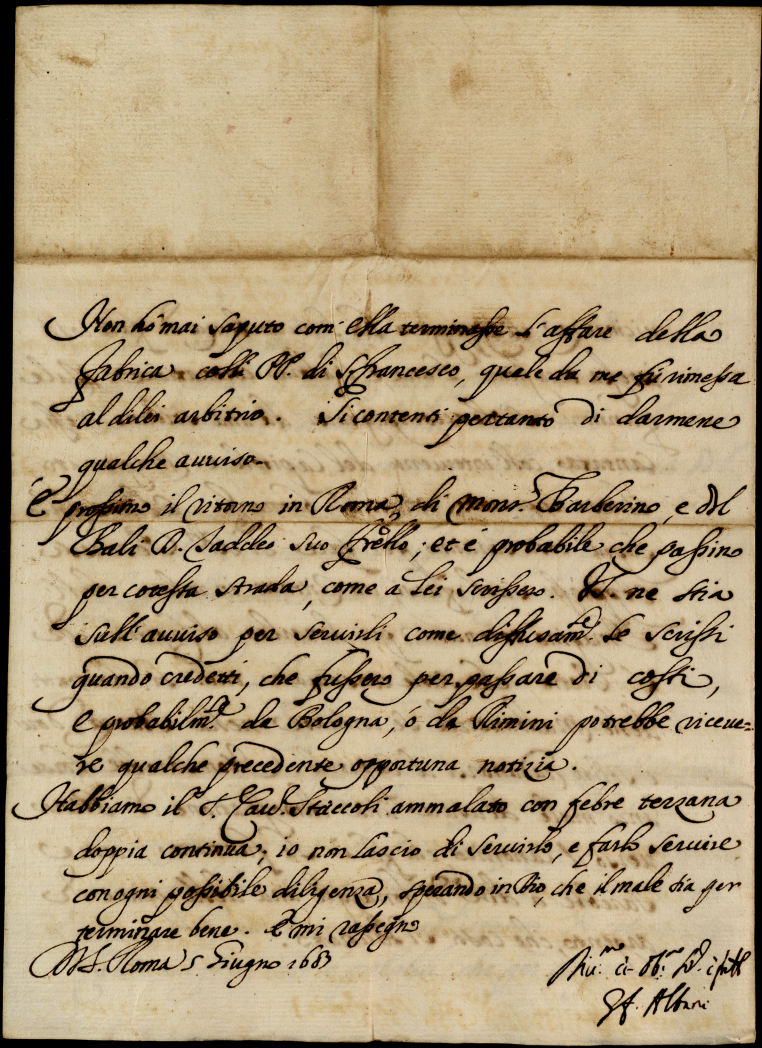 Non hò mai saputo com' ella terminasse l'affare della
fabrica colli PP. di S. francesco, quale da me fù rimessa
al di lei arbitrio. Si contenti pertanto di darmene
qualche avviso.
È prossimo il ritorno in Roma di Mons.r Barberino, e del
Balì D. Taddeo suo frello; et è probabile che passino
per cotesta strada, come à lei scrissero. V.S. ne stia
sull' avviso per servirli come diffusam.te le scrissi
quando credetti, che fussero per passare di costì,
e probabilm.te da Bologna, ò da Rimini potrebbe riceve=
re qualche precedente opportuna notizia.
Habbiamo il S.r Cav.r Staccoli ammalato con febre terzana
doppia continua; io non lascio di servirlo, e farlo servire
con ogni possibile diligenza, sperando in Dio, che il male sia per
terminare bene. E mi rassegno
Di V.S. Roma 5 Giugno 1683
Aff.mo Albani